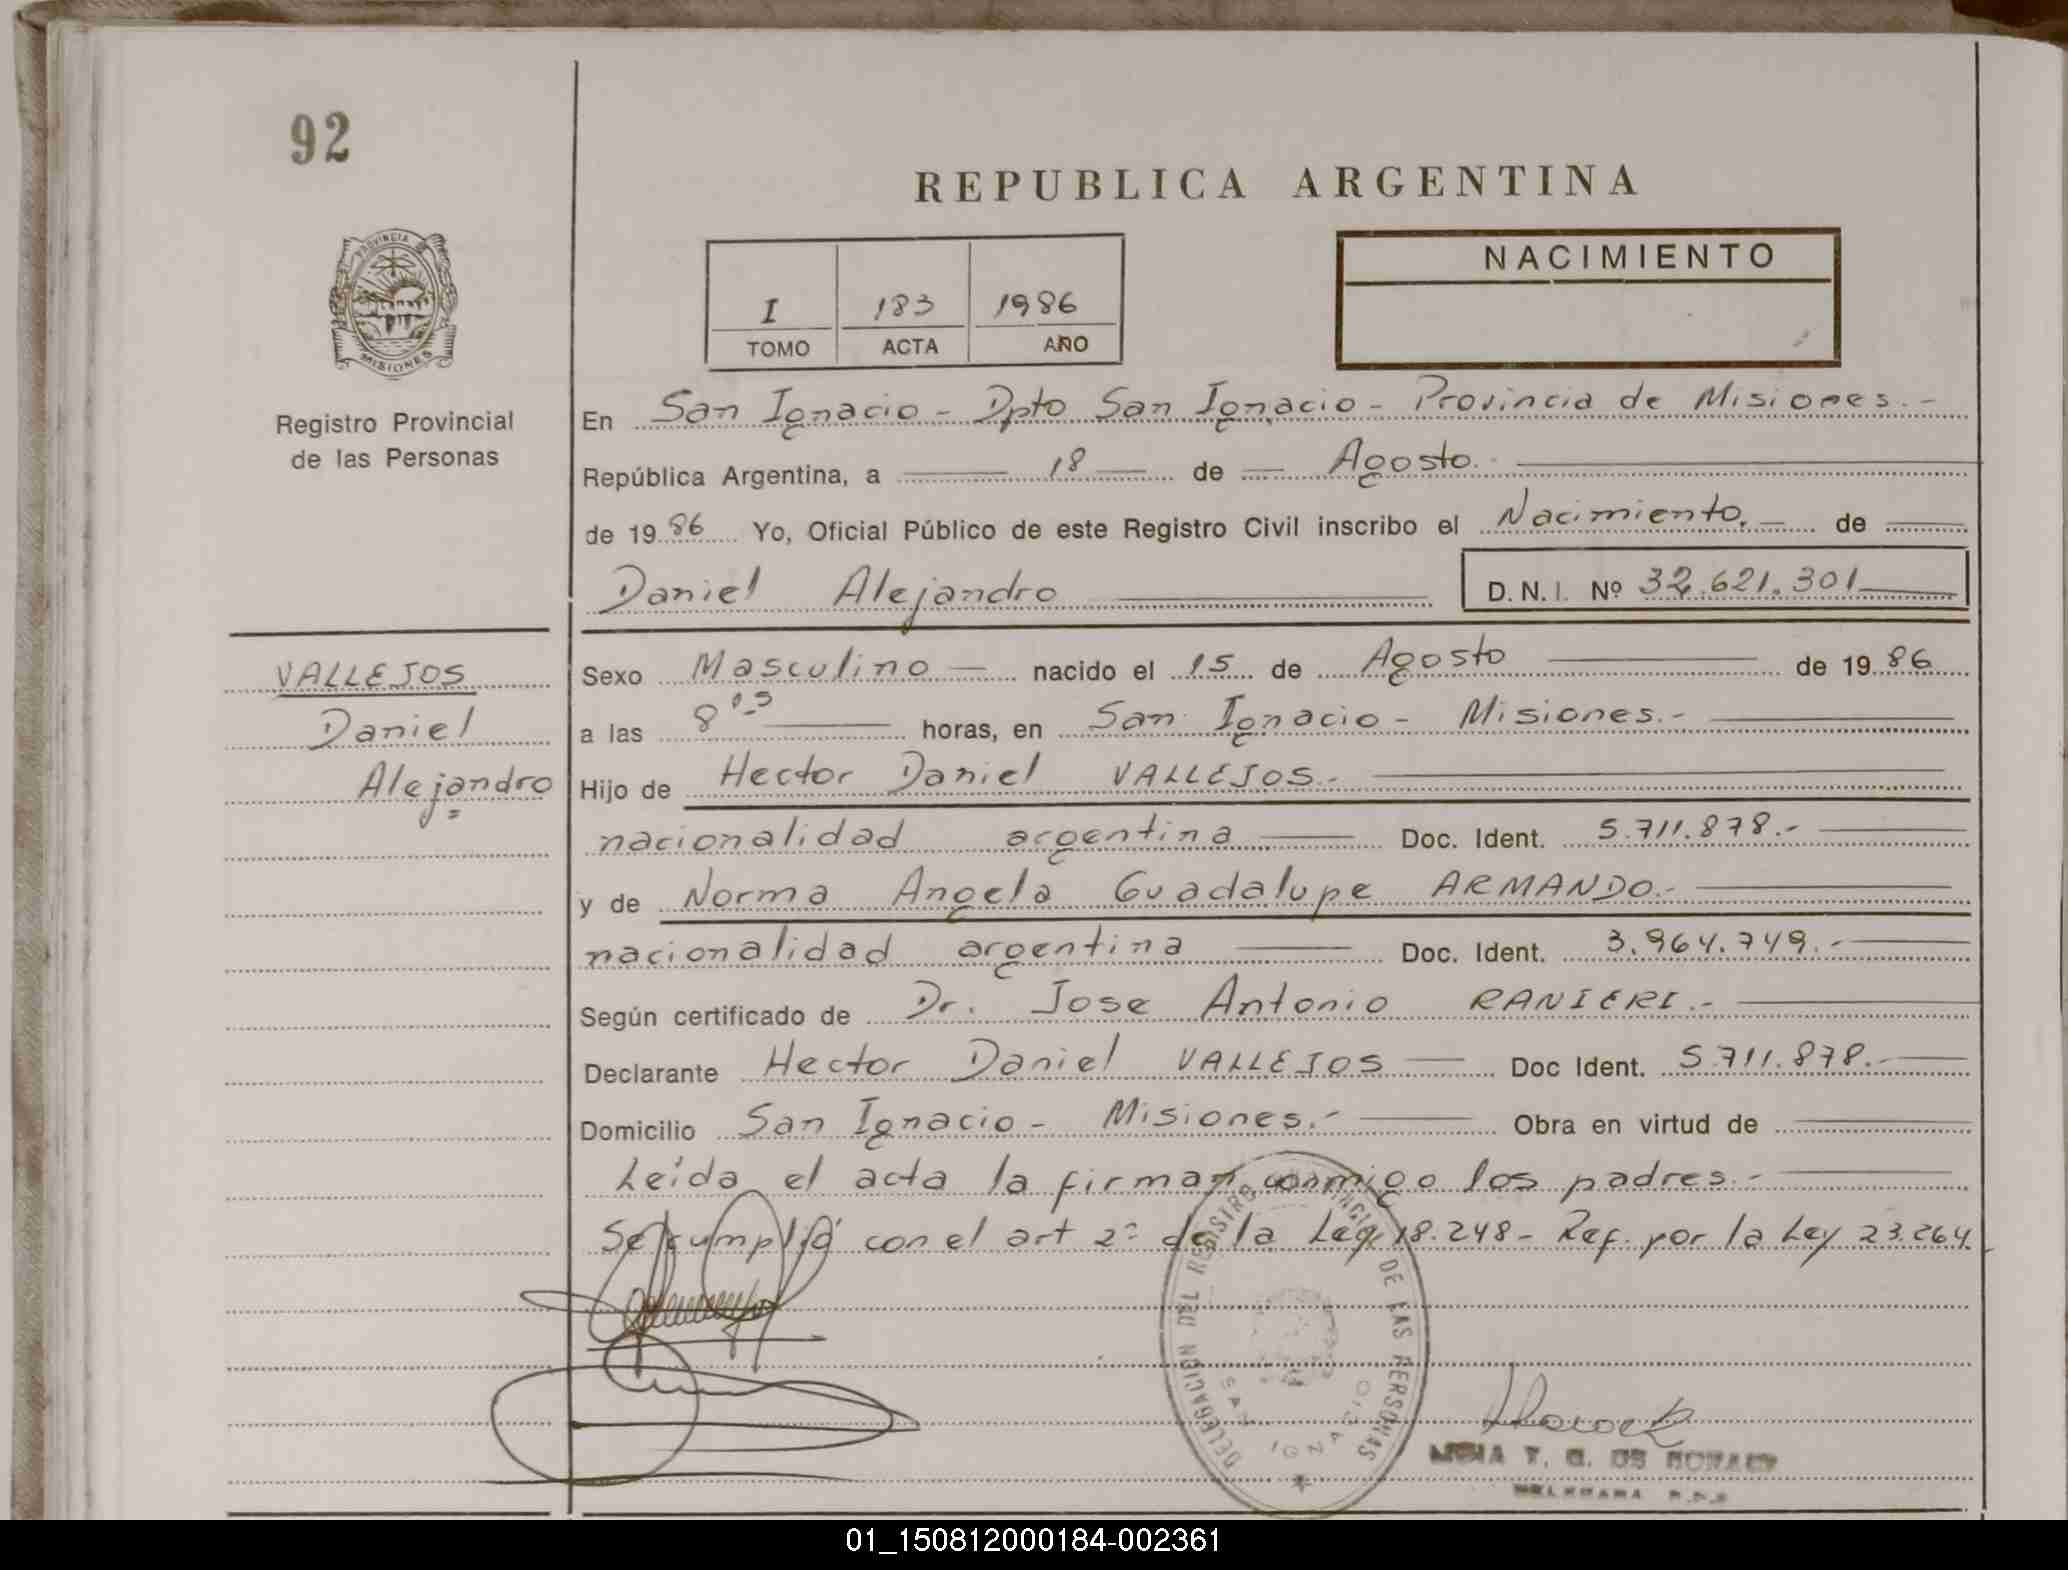 92
REPUBLICA ARGENTINA
PROVINCIA DE
MISIONES
Registro Provincial
de las Personas
I 183 1986
TOMO ACTA AÑO
NACIMIENTO
En San Ignacio - Dpto San Ignacio - Provincia de Misiones.-
República Argentina, a 18 de Agosto.-
de 1986 Yo, Oficial Público de este Registro Civil inscribo el Nacimiento.- de
Daniel Alejandro D.N.I. Nº 32.621.301
VALLEJOS
Daniel
Alejandro
Sexo Masculino nacido el 15 de Agosto de 1986
a las 8 horas, en San Ignacio - Misiones.-
Hijo de Hector Daniel VALLEJOS.-
nacionalidad argentina Doc. Ident. 5.711.878.-
y de Norma Angela Guadalupe ARMANDO.-
nacionalidad argentina Doc. Ident. 3.964.749.-
Según certificado de Dr. Jose Antonio RANIERI.-
Declarante Hector Daniel VALLEJOS Doc Ident. 5.711.878.-
Domicilio San Ignacio - Misiones.- Obra en virtud de
Leída el acta la firman conmigo los padres.-
Se cumplió con el art 2º de la Ley 18.248 - Ref. por la Ley 23.264.
DELEGACION DEL REGISTRO PROVINCIAL DE LAS PERSONAS
SAN IGNACIO
01_150812000184-002361